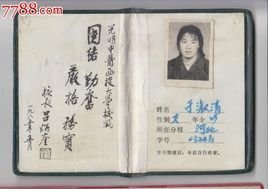 7788.com
光明中医函授大学校风
团结 勤奋
严格 务实
校长 吕炳奎
一九八五年五月
姓名 于淑清
性别 女 年令
所在分校 河北
学号
学习期满后，本证自行作废。